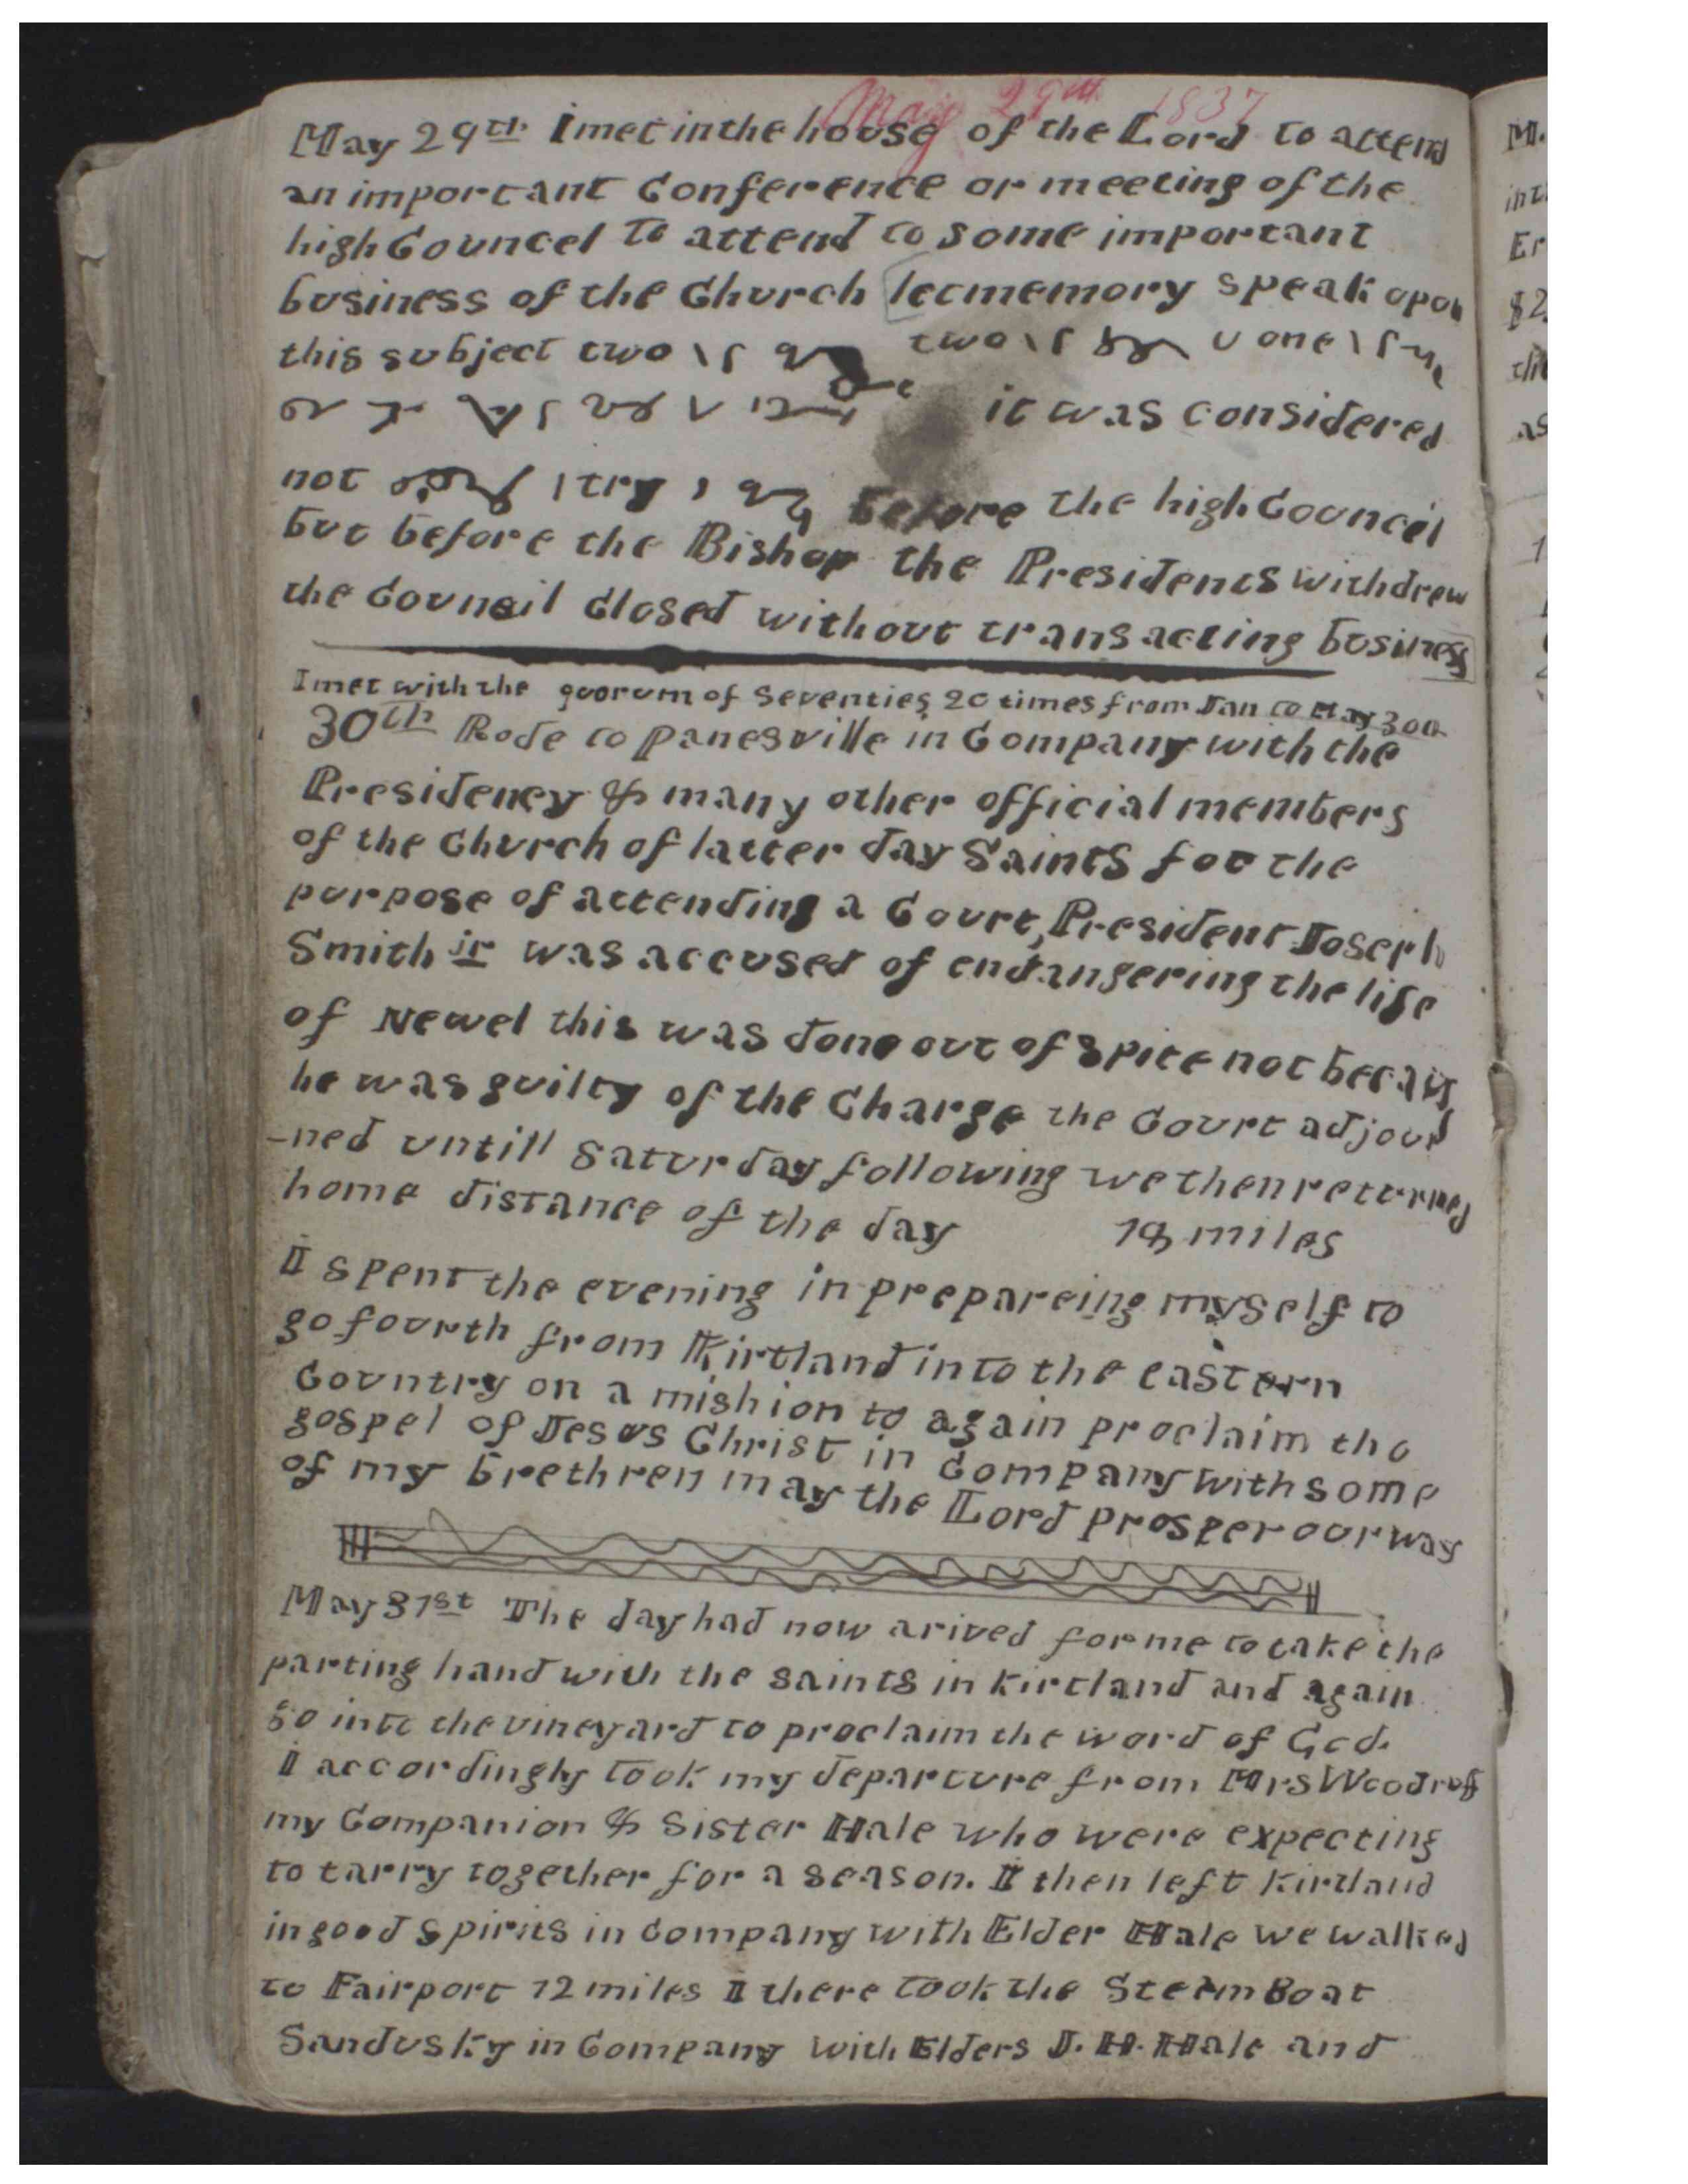 May 29th 1837
May 29th I met in the house of the Lord to attend
an important Conference or meeting of the
high Councel to attend to some important
business of the Church let memory speak upon
this subject two two one
it was considered
not try before the high Council
but before the Bishop the Presidents withdrew
the Council Closed without transacting business
I met with the quorum of Seventies 20 times from Jan to May 30th
30th Rode to Panesville in Company with the
Presidency & many other official members
of the Church of latter day Saints for the
purpose of attending a Court, President Joseph
Smith jr was accused of endangering the life
of Newel this was done out of spite not becaus
he was guilty of the Charge the Court adjour
-ned untill Saturday following we then returned
home distance of the day 18 miles
I spent the evening in prepareing myself to
go fourth from Kirtland into the eastern
Country on a mishion to again proclaim the
gospel of Jesus Christ in Company with some
of my brethren may the Lord prosper our way
May 31st The day had now arived for me to take the
parting hand with the saints in Kirtland and again
go into the vineyard to proclaim the word of God.
I accordingly took my departure from Mrs Woodruff
my Companion & Sister Hale who were expecting
to tarry together for a season. I then left Kirtland
in good spirits in Company with Elder Hale we walked
to Fairport 12 miles I there took the Steem Boat
Sandusky in Company with Elders J. H. Hale and